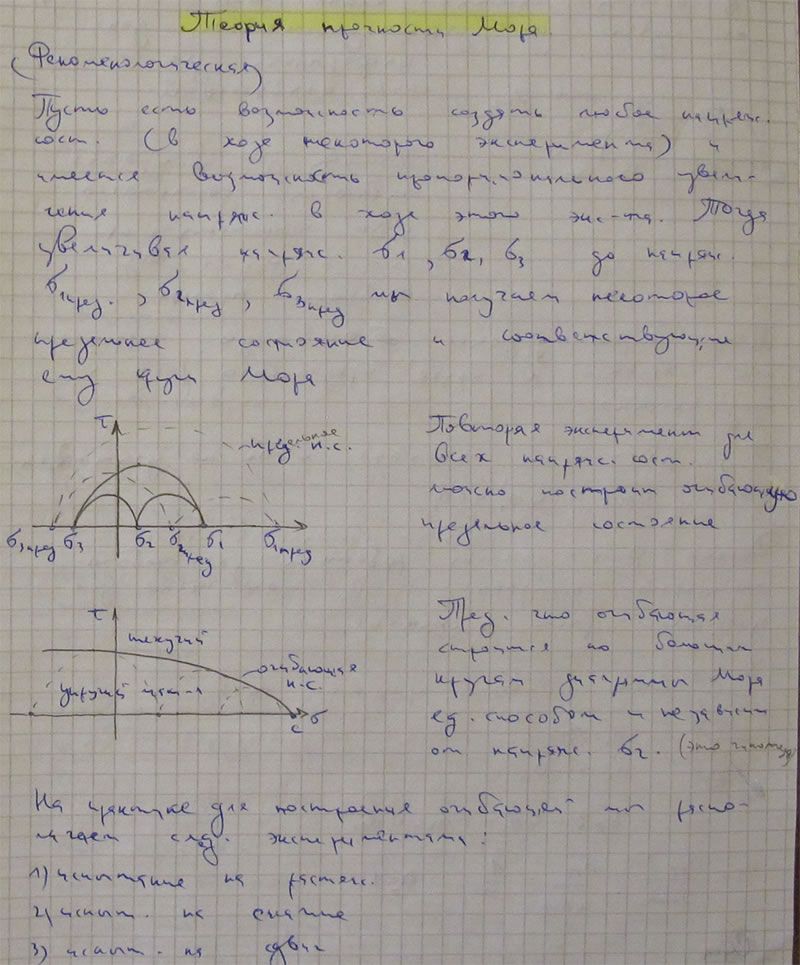 Теория прочности Мора
(Феноменологическая)
Пусть есть возможность создать любое напряж.
сост. (в ходе некоторого эксперимента) и
имеется возможность пропорционального увели-
чения напряж. в ходе этого экс-та. Тогда
увеличивая напряж. σ1, σ2, σ3 до напряж.
σ1пред., σ2пред, σ3пред мы получаем некоторое
предельное состояние и соответствующие
ему круги Мора
τ
предельное
н.с.
σ3пред σ3 σ2 σ2пред σ1 σ1пред
Повторяя эксперимент для
всех напряж. сост.
можно построит огибающую
предельное состояние
τ
текучий
огибающая
н.с.
упругий мат-л
c σ
Пред. что огибающая
строится по большим
кругам диаграммы Мора
ед. способом и независим
от напряж. σ2. (это гипотеза)
На практике для построения огибающей мы распо-
лагаем след. экспериментами:
1) испытание на растяж.
2) испыт. на сжатие
3) испыт. на сдвиг